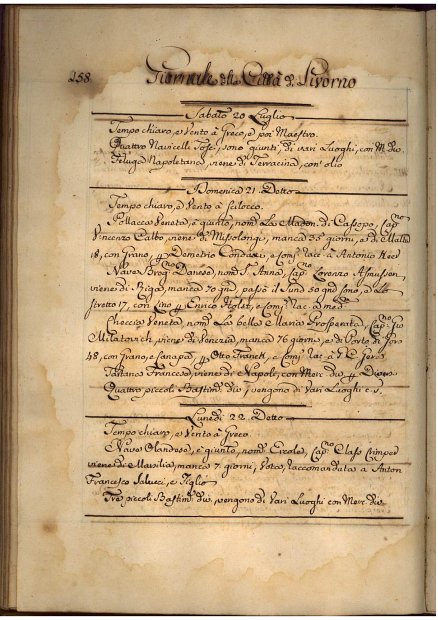 258. Giornale della Città di Livorno
Sabato 20 Luglio
Tempo chiaro, e Vento à Greco, e poi Maestro.
Quattro Navicelli Tosc. sono giunti di vari Luoghi, con M. div.
Feluga Napoletana, viene di Terracina, con olio
Domenica 21. Detto
Tempo chiaro, e Vento à Scilocco.
Pollacca Veneta, è giunto, nom. La Madon. di Cassopo, Cap.no
Vincenzo Calbo, viene di Misolongi, manca 35 giorni, e di Malta
18, con Grano, p Demetrio e Comp. rac. à Antonio
Nave Brog.no Danese, nom. S. Anna, Cap.no Lorenzo Asmussen
viene di Riga, manca 70 gni, passò il Sund 50 gni sono, e Lo
stretto 17, con Lino p Enrico e Comp. rac. à med.
Checcia Veneta, nom. La bella Maria Prosperata, Cap.no Gio
Milatovich, viene di Venezia, manca 76 giorni, e di Porto di
48, con Grano, e Canapa, p Otto Franck, e Comp. rac. à
Tartana Francese, viene di Napoli, con Merc. div. p Diversi
Quattro piccoli Bastim. div., vengono di Vari Luoghi
Lunedi 22. Detto
Tempo chiaro, e Vento à Greco.
Nave Olandese, è giunto, nom. Ercole, Cap.no Claas
viene di Marsilia, manca 7. giorni, Vota, raccomandata à Anton
Francesco Salucci, e Figlio
Tre piccoli Bastim. div. vengono di Vari Luoghi con Merc. div.